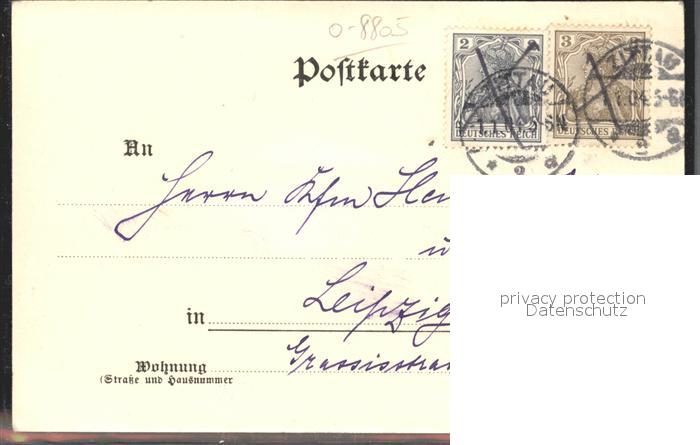 0-8805
2 3
Postkarte
DEUTSCHES REICH DEUTSCHES REICH
ZITTAU ZITTAU
An
Herrn Kfm
u
privacy protection
Datenschutz
in Leipzig
Wohnung Grassistra
(Straße und Hausnummer